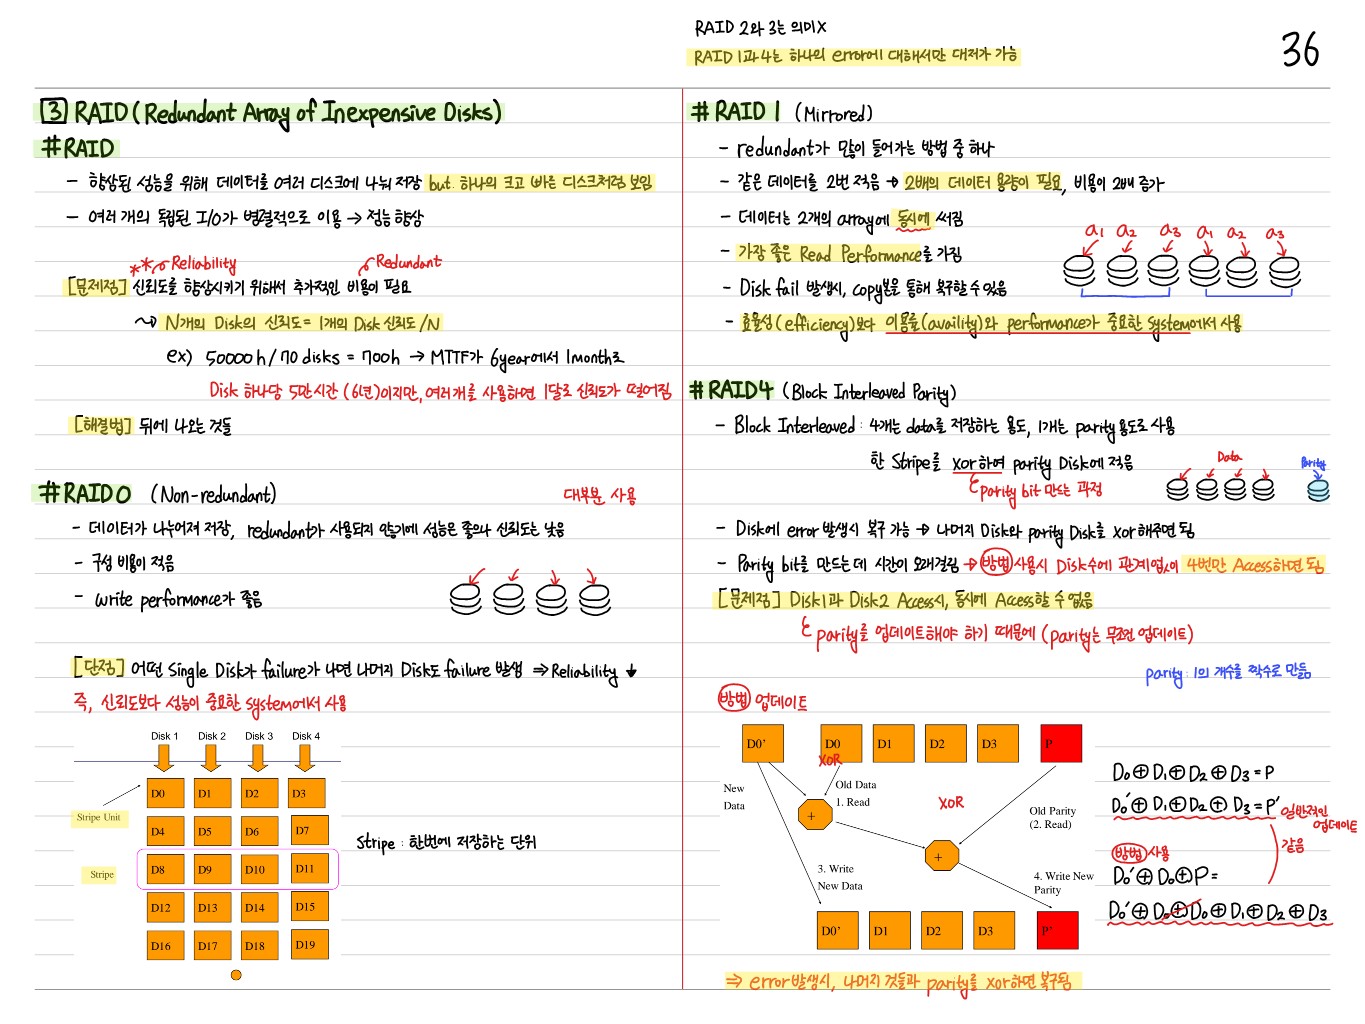 RAID 2와 3는 의미X
RAID 1과 4는 하나의 error에 대해서만 대처가 가능
36
3 RAID (Redundant Array of Inexpensive Disks)
# RAID
- 향상된 성능을 위해 데이터를 여러 디스크에 나눠 저장 but. 하나의 크고 빠른 디스크처럼 보임
- 여러 개의 독립된 I/O가 병렬적으로 이용 → 성능 향상
** Reliability
Redundant
[문제점] 신뢰도를 향상시키기 위해서 추가적인 비용이 필요
N개의 Disk의 신뢰도 = 1개의 Disk 신뢰도 /N
ex) 50000h/70 disks = 700h → MTTF가 6year에서 1month로
Disk 하나당 5만시간 (6년)이지만, 여러개를 사용하면 1달로 신뢰도가 떨어짐
[해결법] 뒤에 나오는 것들
# RAID 0 (Non-redundant)
대부분 사용
- 데이터가 나누어져 저장, redundant가 사용되지 않기에 성능은 좋으나 신뢰도는 낮음
- 구성 비용이 적음
- write performance가 좋음
[단점] 어떤 single Disk가 failure가 나면 나머지 Disk도 failure 발생 ⇒ Reliability ↓
즉, 신뢰도보다 성능이 중요한 system에서 사용
Disk 1 Disk 2 Disk 3 Disk 4
D0 D1 D2 D3
Stripe Unit
D4 D5 D6 D7
Stripe : 한번에 저장하는 단위
Stripe
D8 D9 D10 D11
D12 D13 D14 D15
D16 D17 D18 D19
# RAID 1 (Mirrored)
- redundant가 많이 들어가는 방법 중 하나
- 같은 데이터를 2번 적음 → 2배의 데이터 용량이 필요, 비용이 2배 증가
- 데이터는 2개의 array에 동시에 써짐
a1 a2 a3 a1 a2 a3
- 가장 좋은 Read Performance를 가짐
- Disk fail 발생시, copy본을 통해 복구할 수 있음
- 효율성(efficiency)보다 이용률(availity)와 performance가 중요한 system에서 사용
# RAID4 (Block Interleaved Parity)
- Block Interleaved : 4개는 data를 저장하는 용도, 1개는 parity 용도로 사용
한 Stripe를 xor하여 parity Disk에 적음
parity bit 만드는 과정
Data
Parity
- Disk에 error 발생시 복구 가능 → 나머지 Disk와 parity Disk를 xor해주면 됨
- Parity bit를 만드는 데 시간이 오래걸림 → 방법 사용시 Disk수에 관계없이 4번만 Access하면 됨
[문제점] Disk1과 Disk2 Access시, 동시에 Access할 수 없음
parity를 업데이트해야 하기 때문에 (parity는 무조건 업데이트)
parity : 1의 개수를 짝수로 만듦
방법 업데이트
D0' D0 D1 D2 D3 P
XOR
New Data
Old Data
1. Read
XOR
Old Parity
(2. Read)
+
+
3. Write
New Data
4. Write New
Parity
D0' D1 D2 D3 P'
D0⊕D1⊕D2⊕D3=P
D0'⊕D1⊕D2⊕D3=P'
일반적인 업데이트
같음
방법 사용
D0'⊕D0⊕P=
D0'⊕D0⊕D0⊕D1⊕D2⊕D3
⇒ error 발생시, 나머지 것들과 parity를 xor하면 복구됨